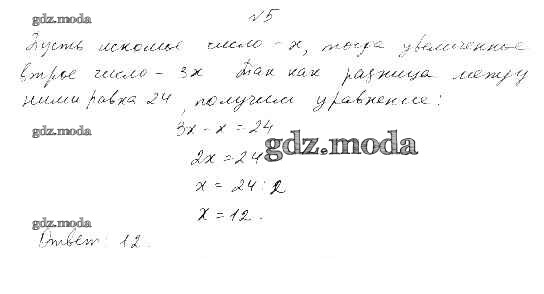 №5
gdz.moda
Пусть искомое число - х, тогда увеличенное
втрое число - 3х Так как разница между
ними равна 24, получим уравнение:
gdz.moda
3х - х = 24
gdz.moda
2х = 24
х = 24 : 2
х = 12.
gdz.moda
Ответ: 12.